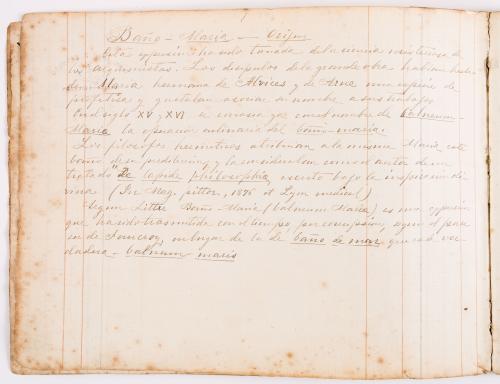 Baño-Maria - Orijen
Esta espresión ha sido tomada de la ciencia misteriosa de
los alquimistas. Los discípulos de la grande obra habian hecho
de Maria hermana de Moises y de Aron una especie de
profetisa y gustaban asociar su nombre a sus trabajos
En el siglo XV y XVI se conocia ya con el nombre de balneum-
Mariæ la operacion culinaria del baño-maria.
Los filósofos herméticos atribuian a la misma Maria este
baño de su predilección y la consideraban como el autor de un
tratado "De lapide philosophico" escrito bajo la inspiracion di-
vina (Mag. pittor, 1876 et Lyon medical)
Segun Littré Baño-Maria (balneum Mariæ) es una espresión
que ha sido trasmitida con el tiempo por corrupción, segun el
de Francia, en lugar de la de baño de mar, que es la ver-
dadera - balneum maris